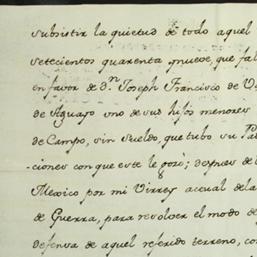 subsistir la quietud de todo aquel
setecientos quarenta nueve, que fal
en favor de d.n Joseph Francisco de V
de Aguayo uno de sus hijos menores
de Campo, sin sueldo, que tubo su Pa
ciones con que este le gozó; despues de
Mexico por mi Virrey actual de la
de Guerra, para resolver el modo de
defensa de aquel referido terreno, co